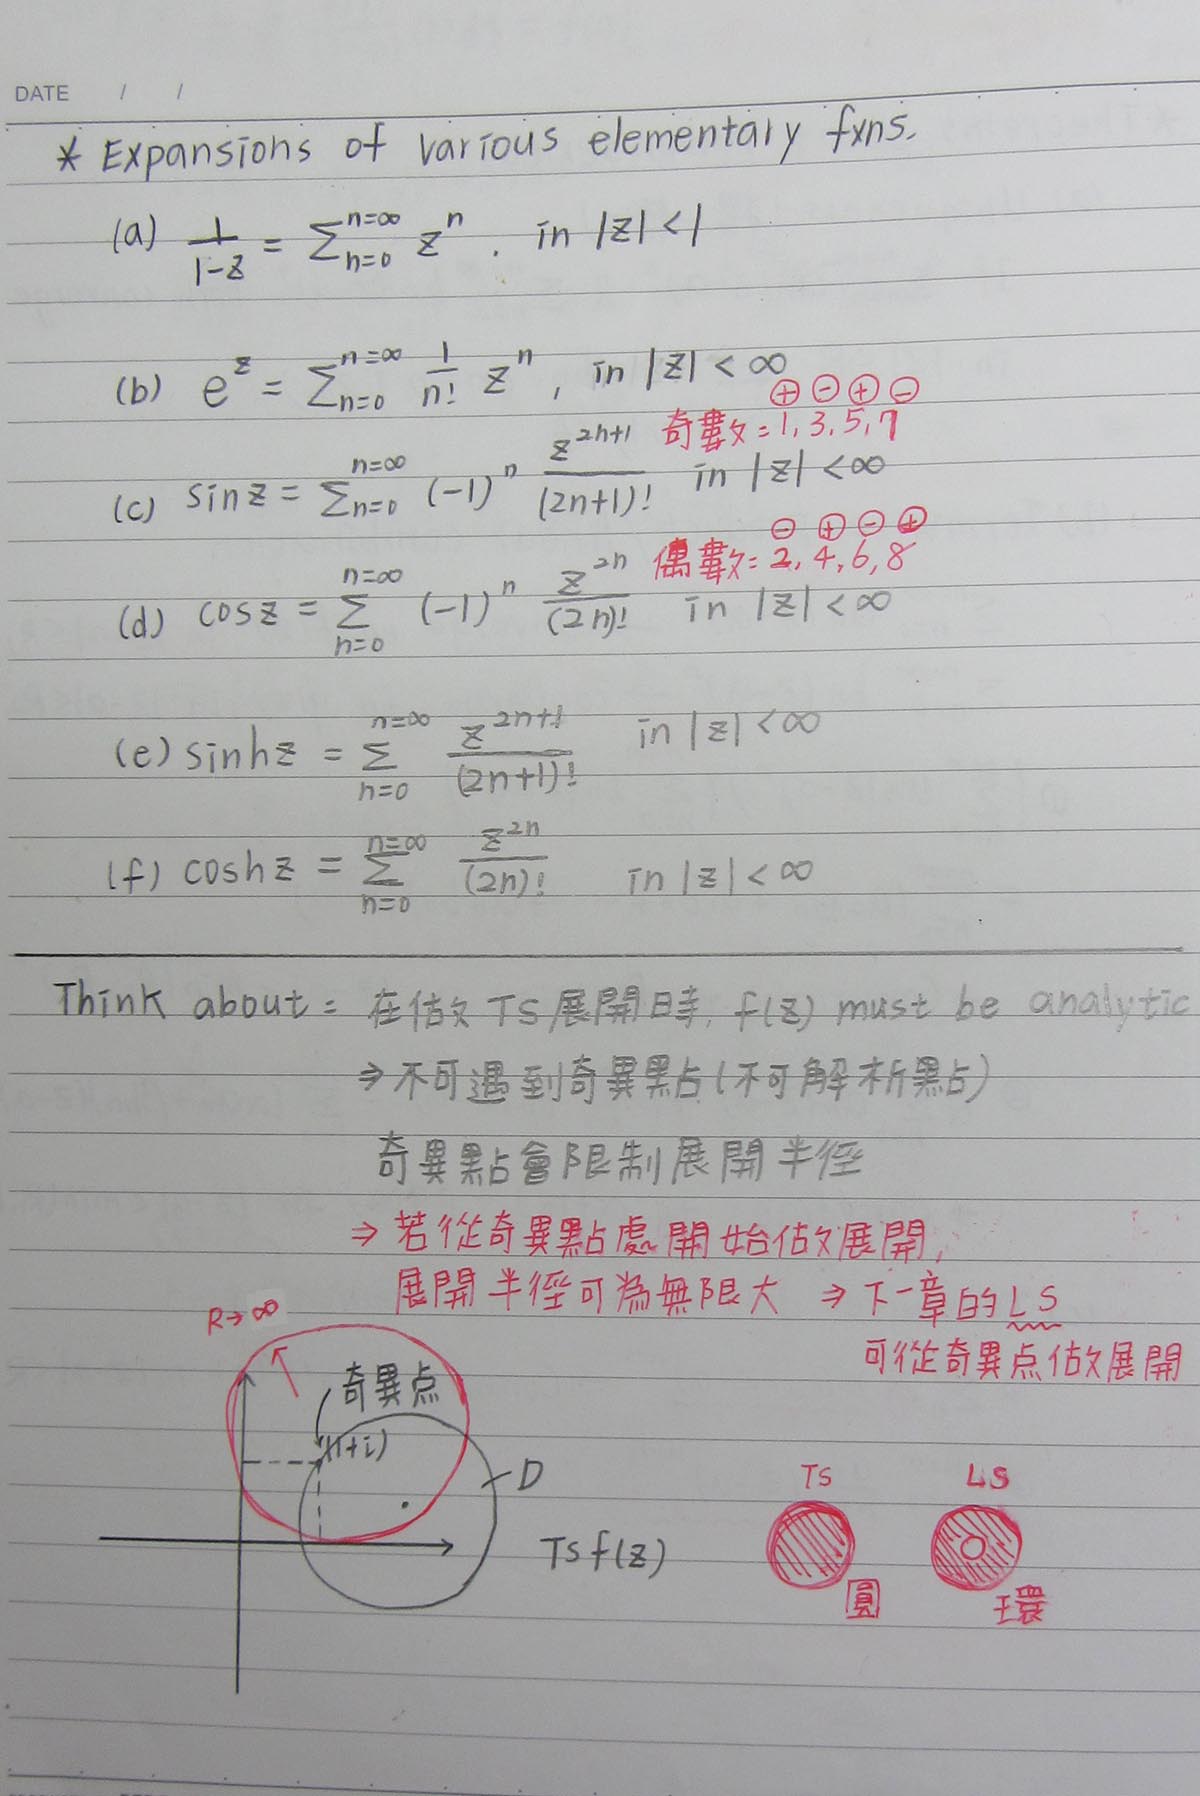 DATE / /
* Expansions of various elementary fxns.
(a) 1/(1-z) = Σ_{n=0}^{n=∞} z^n . in |z| < 1
(b) e^z = Σ_{n=0}^{n=∞} 1/n! z^n , in |z| < ∞
⊕ ⊖ ⊕ ⊖
奇數 = 1, 3, 5, 7
(c) sin z = Σ_{n=0}^{n=∞} (-1)^n z^{2n+1}/(2n+1)! in |z| < ∞
⊖ ⊕ ⊖ ⊕
偶數 = 2, 4, 6, 8
(d) cos z = Σ_{n=0}^{n=∞} (-1)^n z^{2n}/(2n)! in |z| < ∞
(e) sinh z = Σ_{n=0}^{n=∞} z^{2n+1}/(2n+1)! in |z| < ∞
(f) cosh z = Σ_{n=0}^{n=∞} z^{2n}/(2n)! in |z| < ∞
Think about = 在做 TS 展開時, f(z) must be analytic
⇒ 不可遇到奇異點 (不可解析點)
奇異點會限制展開半徑
⇒ 若從奇異點處開始做展開,
展開半徑可為無限大 ⇒ 下一章的 LS
可從奇異点做展開
R→∞
奇異点
(1+i)
D
TS f(z)
TS LS
圓 環